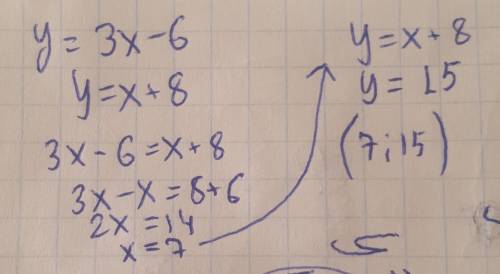 y = 3x - 6
y = x + 8
3x - 6 = x + 8
3x - x = 8 + 6
2x = 14
x = 7
y = x + 8
y = 15
(7; 15)